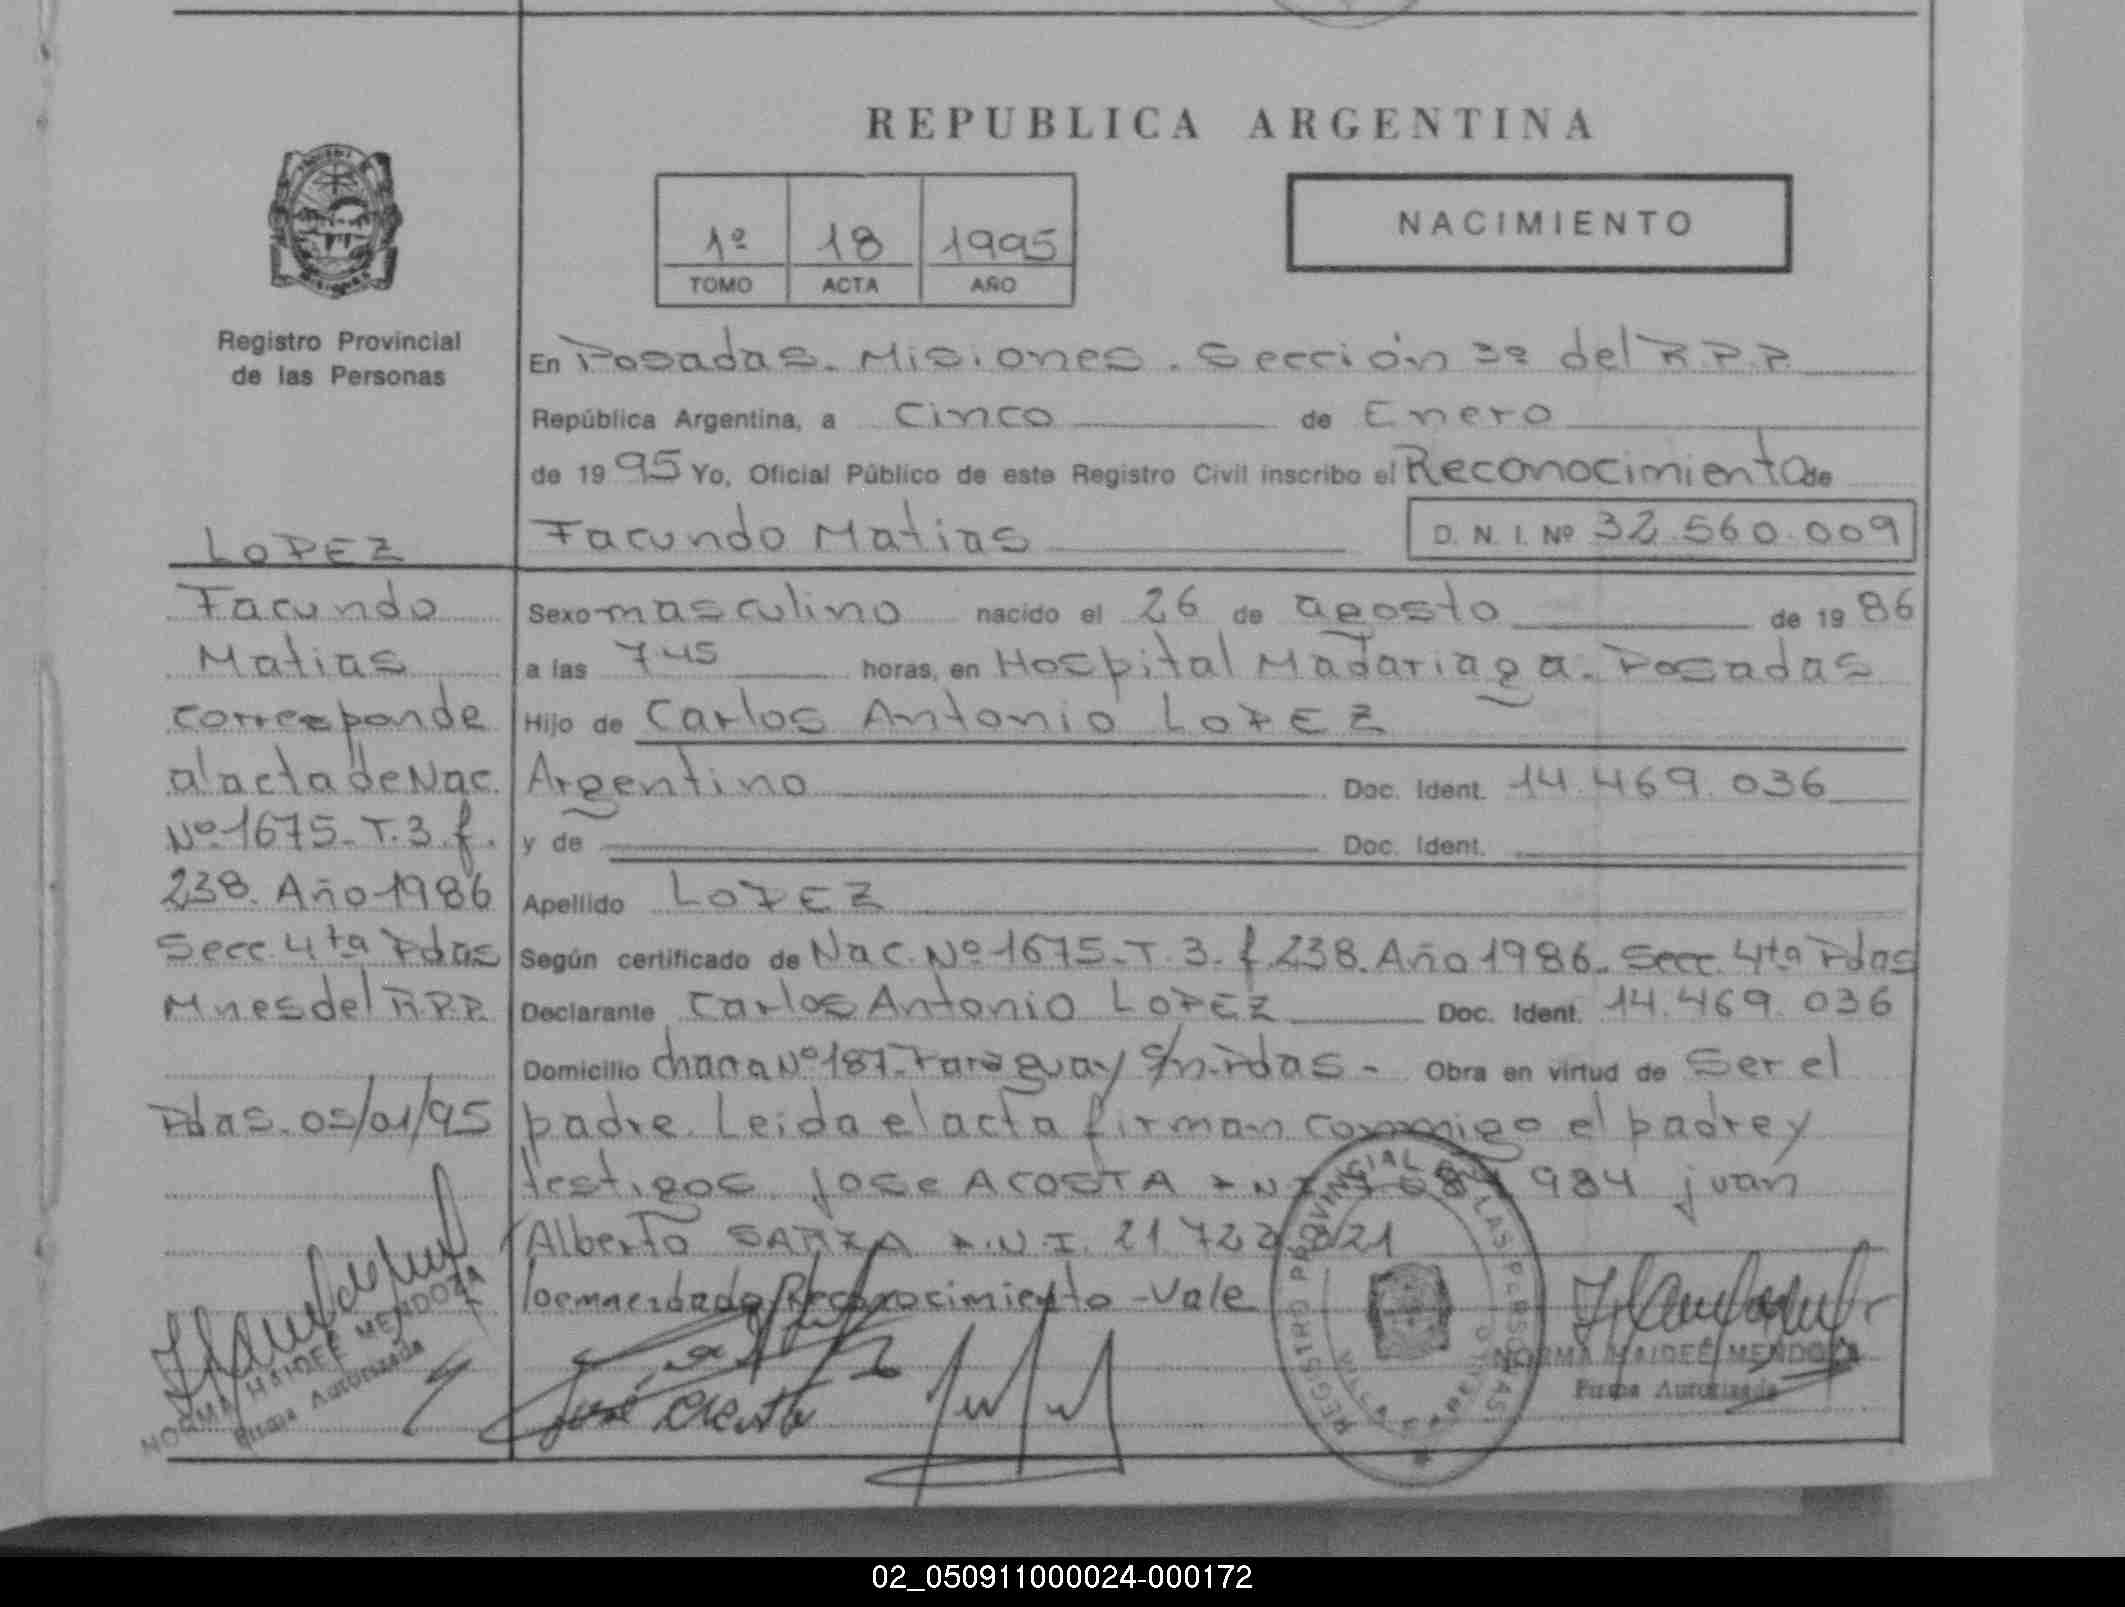 REPUBLICA ARGENTINA
1º 18 1995
TOMO ACTA AÑO
NACIMIENTO
Registro Provincial
de las Personas
LOPEZ
Facundo
Matias
corresponde
al acta de Nac.
Nº 1675-T.3.f.
238. Año 1986
Secc. 4ta Pdas
Mnes del R.P.P.
Pdas. 05/01/95
NORMA HAIDEÉ MENDOZA
Firma Autorizada
En Posadas. Misiones. Sección 3º del R.P.P.
República Argentina, a Cinco de Enero
de 1995 Yo, Oficial Público de este Registro Civil inscribo el Reconocimiento de
Facundo Matias D. N. I. Nº 32.560.009
Sexo masculino nacido el 26 de agosto de 1986
a las 7.45 horas, en Hospital Madariaga. Posadas
Hijo de Carlos Antonio LOPEZ
Argentino Doc. Ident. 14.469.036
y de Doc. Ident.
Apellido LOPEZ
Según certificado de Nac. Nº 1675-T.3.f.238. Año 1986. Secc. 4ta Pdas
Declarante Carlos Antonio LOPEZ Doc. Ident. 14.469.036
Domicilio chacra Nº 187. Paraguay s/n. Pdas - Obra en virtud de Ser el
padre. Leida el acta firman conmigo el padre y
testigos. Jose ACOSTA 984 juan
Alberto D.N.I. 21.722.821
lo enmendado Reconocimiento - Vale
José
REGISTRO PROVINCIAL DE LAS PERSONAS
NORMA HAIDEÉ MENDOZA
Firma Autorizada
02_050911000024-000172